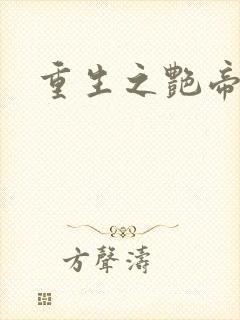 重生之艷帝
方聲濤